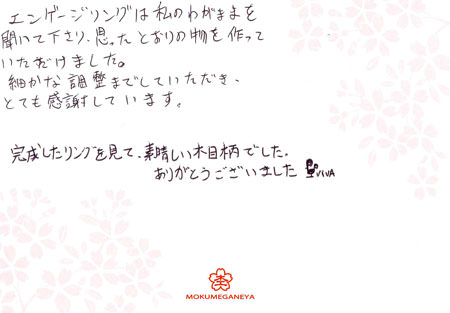 エンゲージリングは私のわがままを
聞いて下さり、思ったとおりの物を作って
いただけました。
細かな調整までしていただき、
とても感謝しています。
完成したリングを見て、素晴しい木目柄でした。
ありがとうございました VIVA
MOKUMEGANEYA